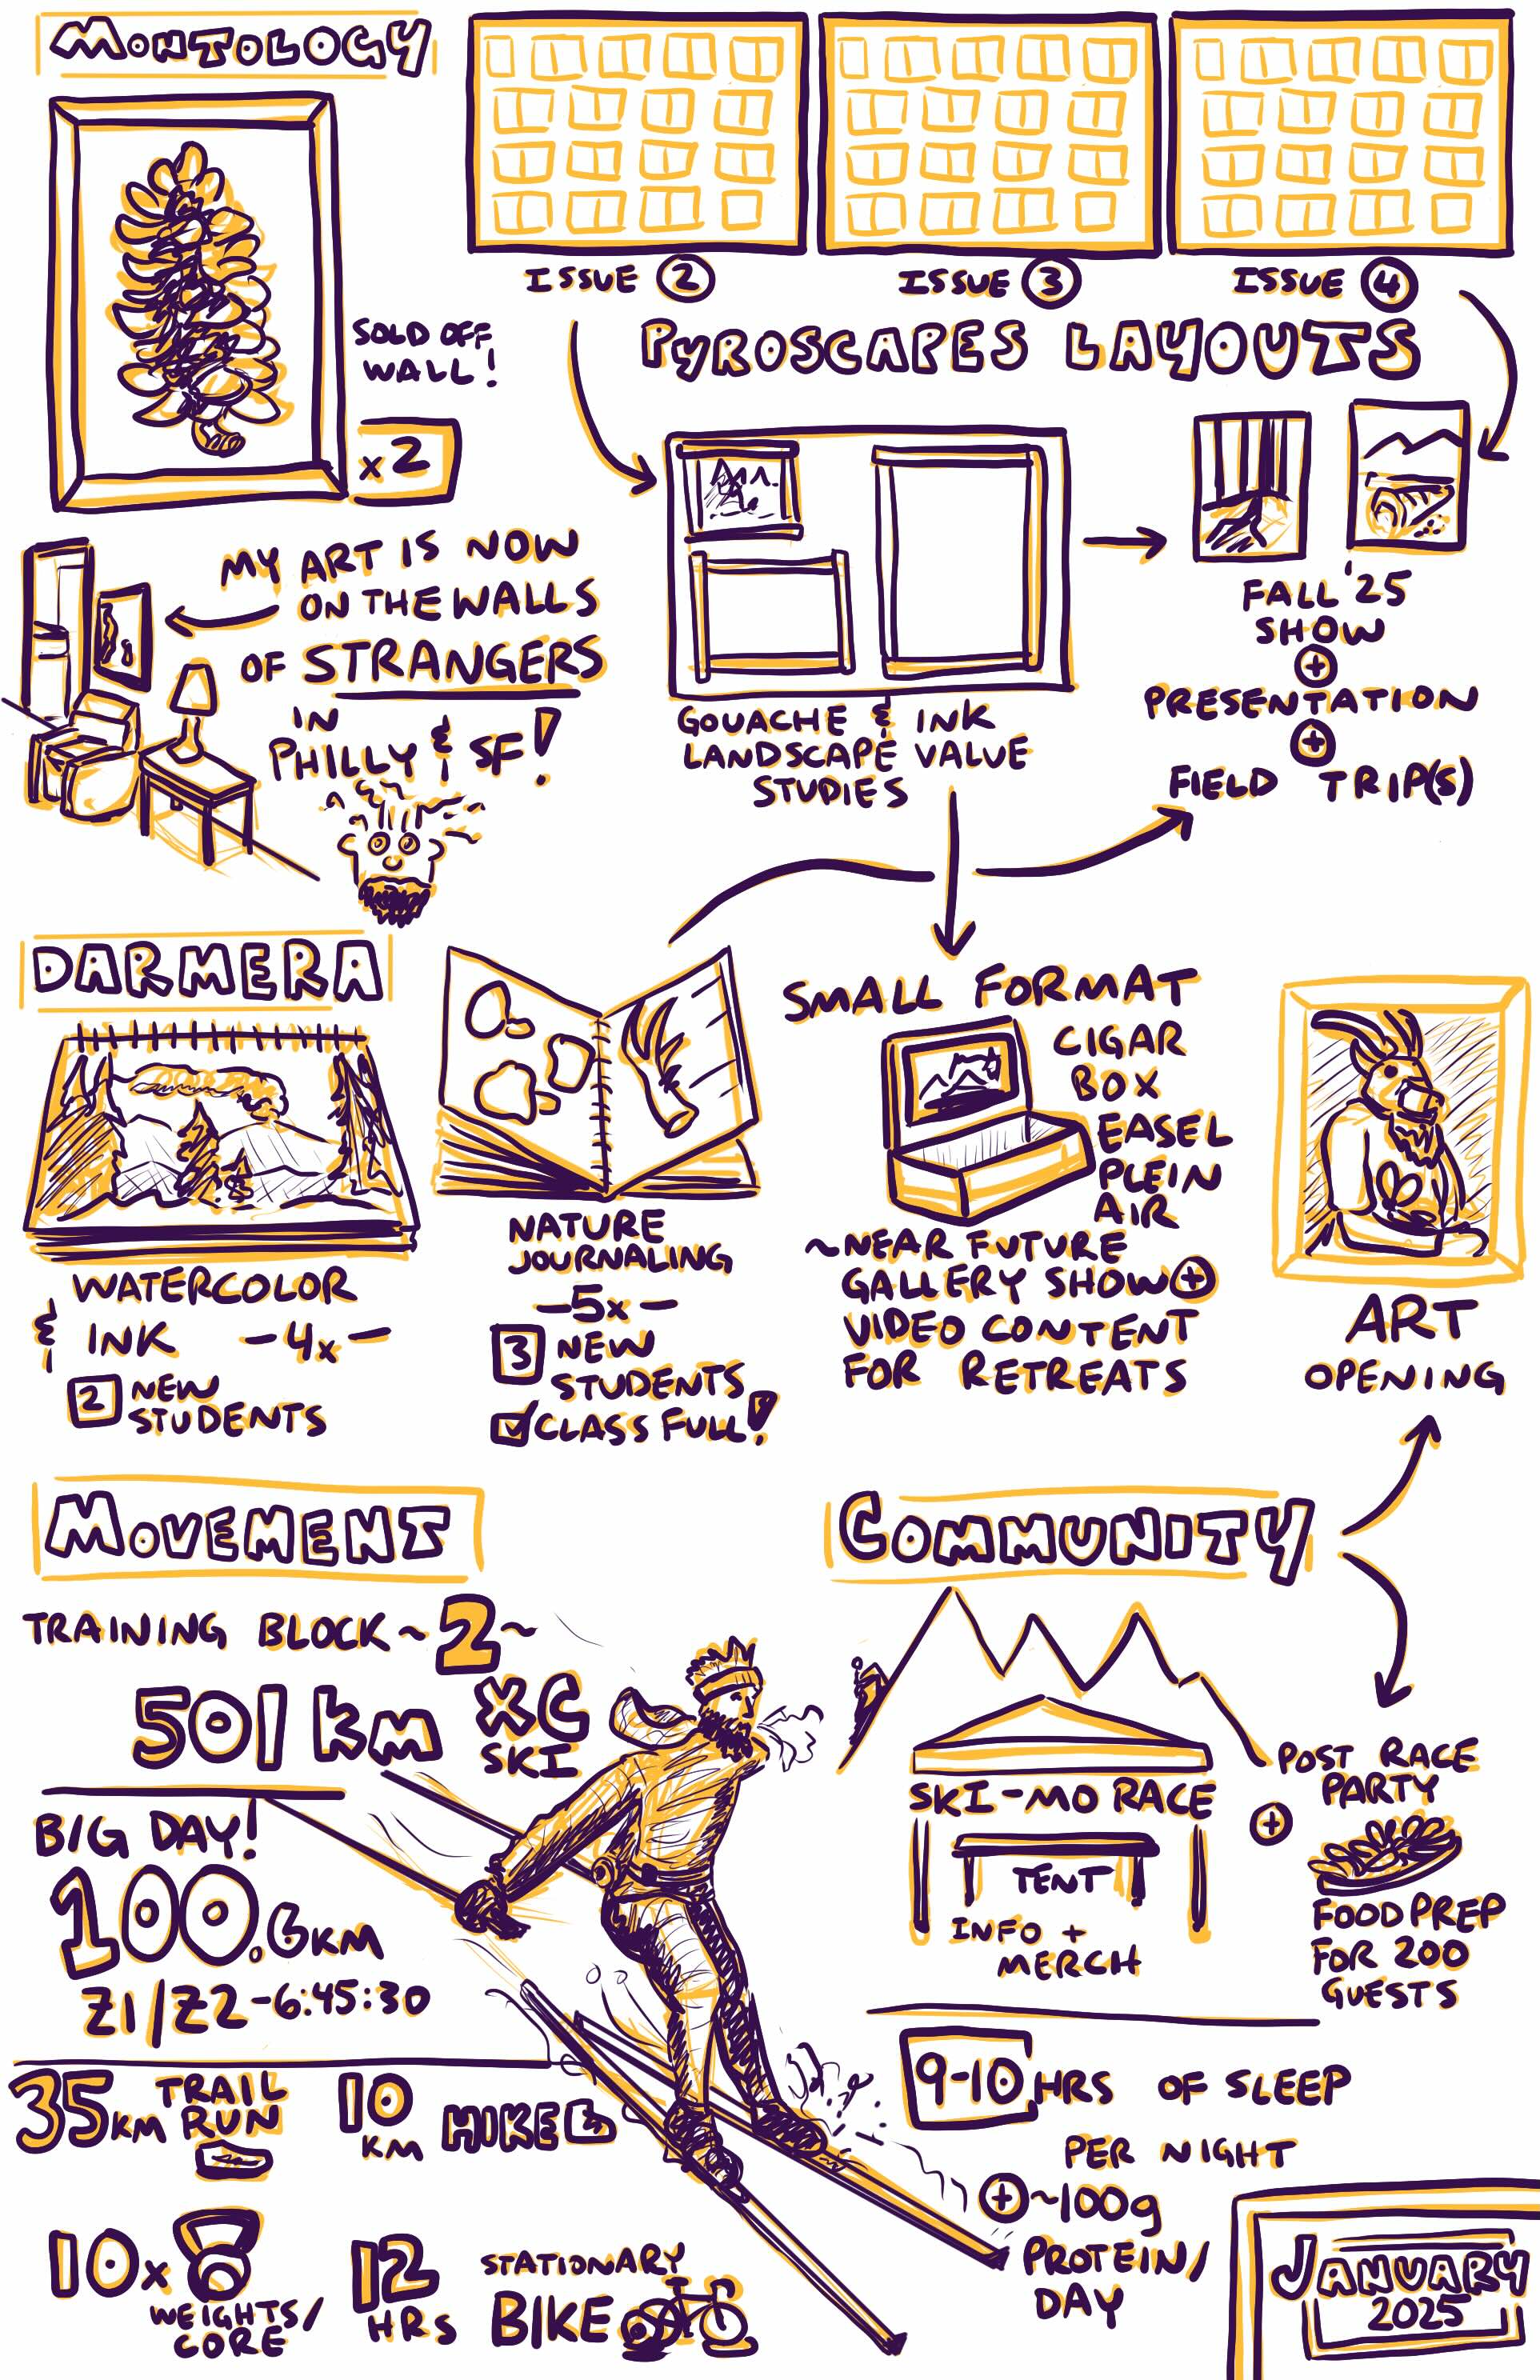 MONTOLOGY
SOLD OFF
WALL!
x2
MY ART IS NOW
ON THE WALLS
OF STRANGERS
IN
PHILLY & SF!
ISSUE 2
ISSUE 3
ISSUE 4
PYROSCAPES LAYOUTS
GOUACHE & INK
LANDSCAPE VALUE
STUDIES
FALL '25
SHOW
+
PRESENTATION
+
FIELD TRIP(S)
DARMERA
WATERCOLOR
& INK -4x-
2 NEW
STUDENTS
NATURE
JOURNALING
-5x-
3 NEW
STUDENTS
CLASS FULL!
SMALL FORMAT
CIGAR
BOX
EASEL
PLEIN
AIR
~NEAR FUTURE
GALLERY SHOW +
VIDEO CONTENT
FOR RETREATS
ART
OPENING
MOVEMENT
TRAINING BLOCK ~2~
501 km XC
SKI
BIG DAY!
100.6KM
Z1/Z2-6:45:30
35KM TRAIL
RUN
10
KM HIKE
10x
WEIGHTS/
CORE
12
HRS
STATIONARY
BIKE
COMMUNITY
SKI-MO RACE
TENT
INFO +
MERCH
+
POST RACE
PARTY
FOOD PREP
FOR 200
GUESTS
9-10 HRS OF SLEEP
PER NIGHT
+ ~100g
PROTEIN/
DAY
JANUARY
2025